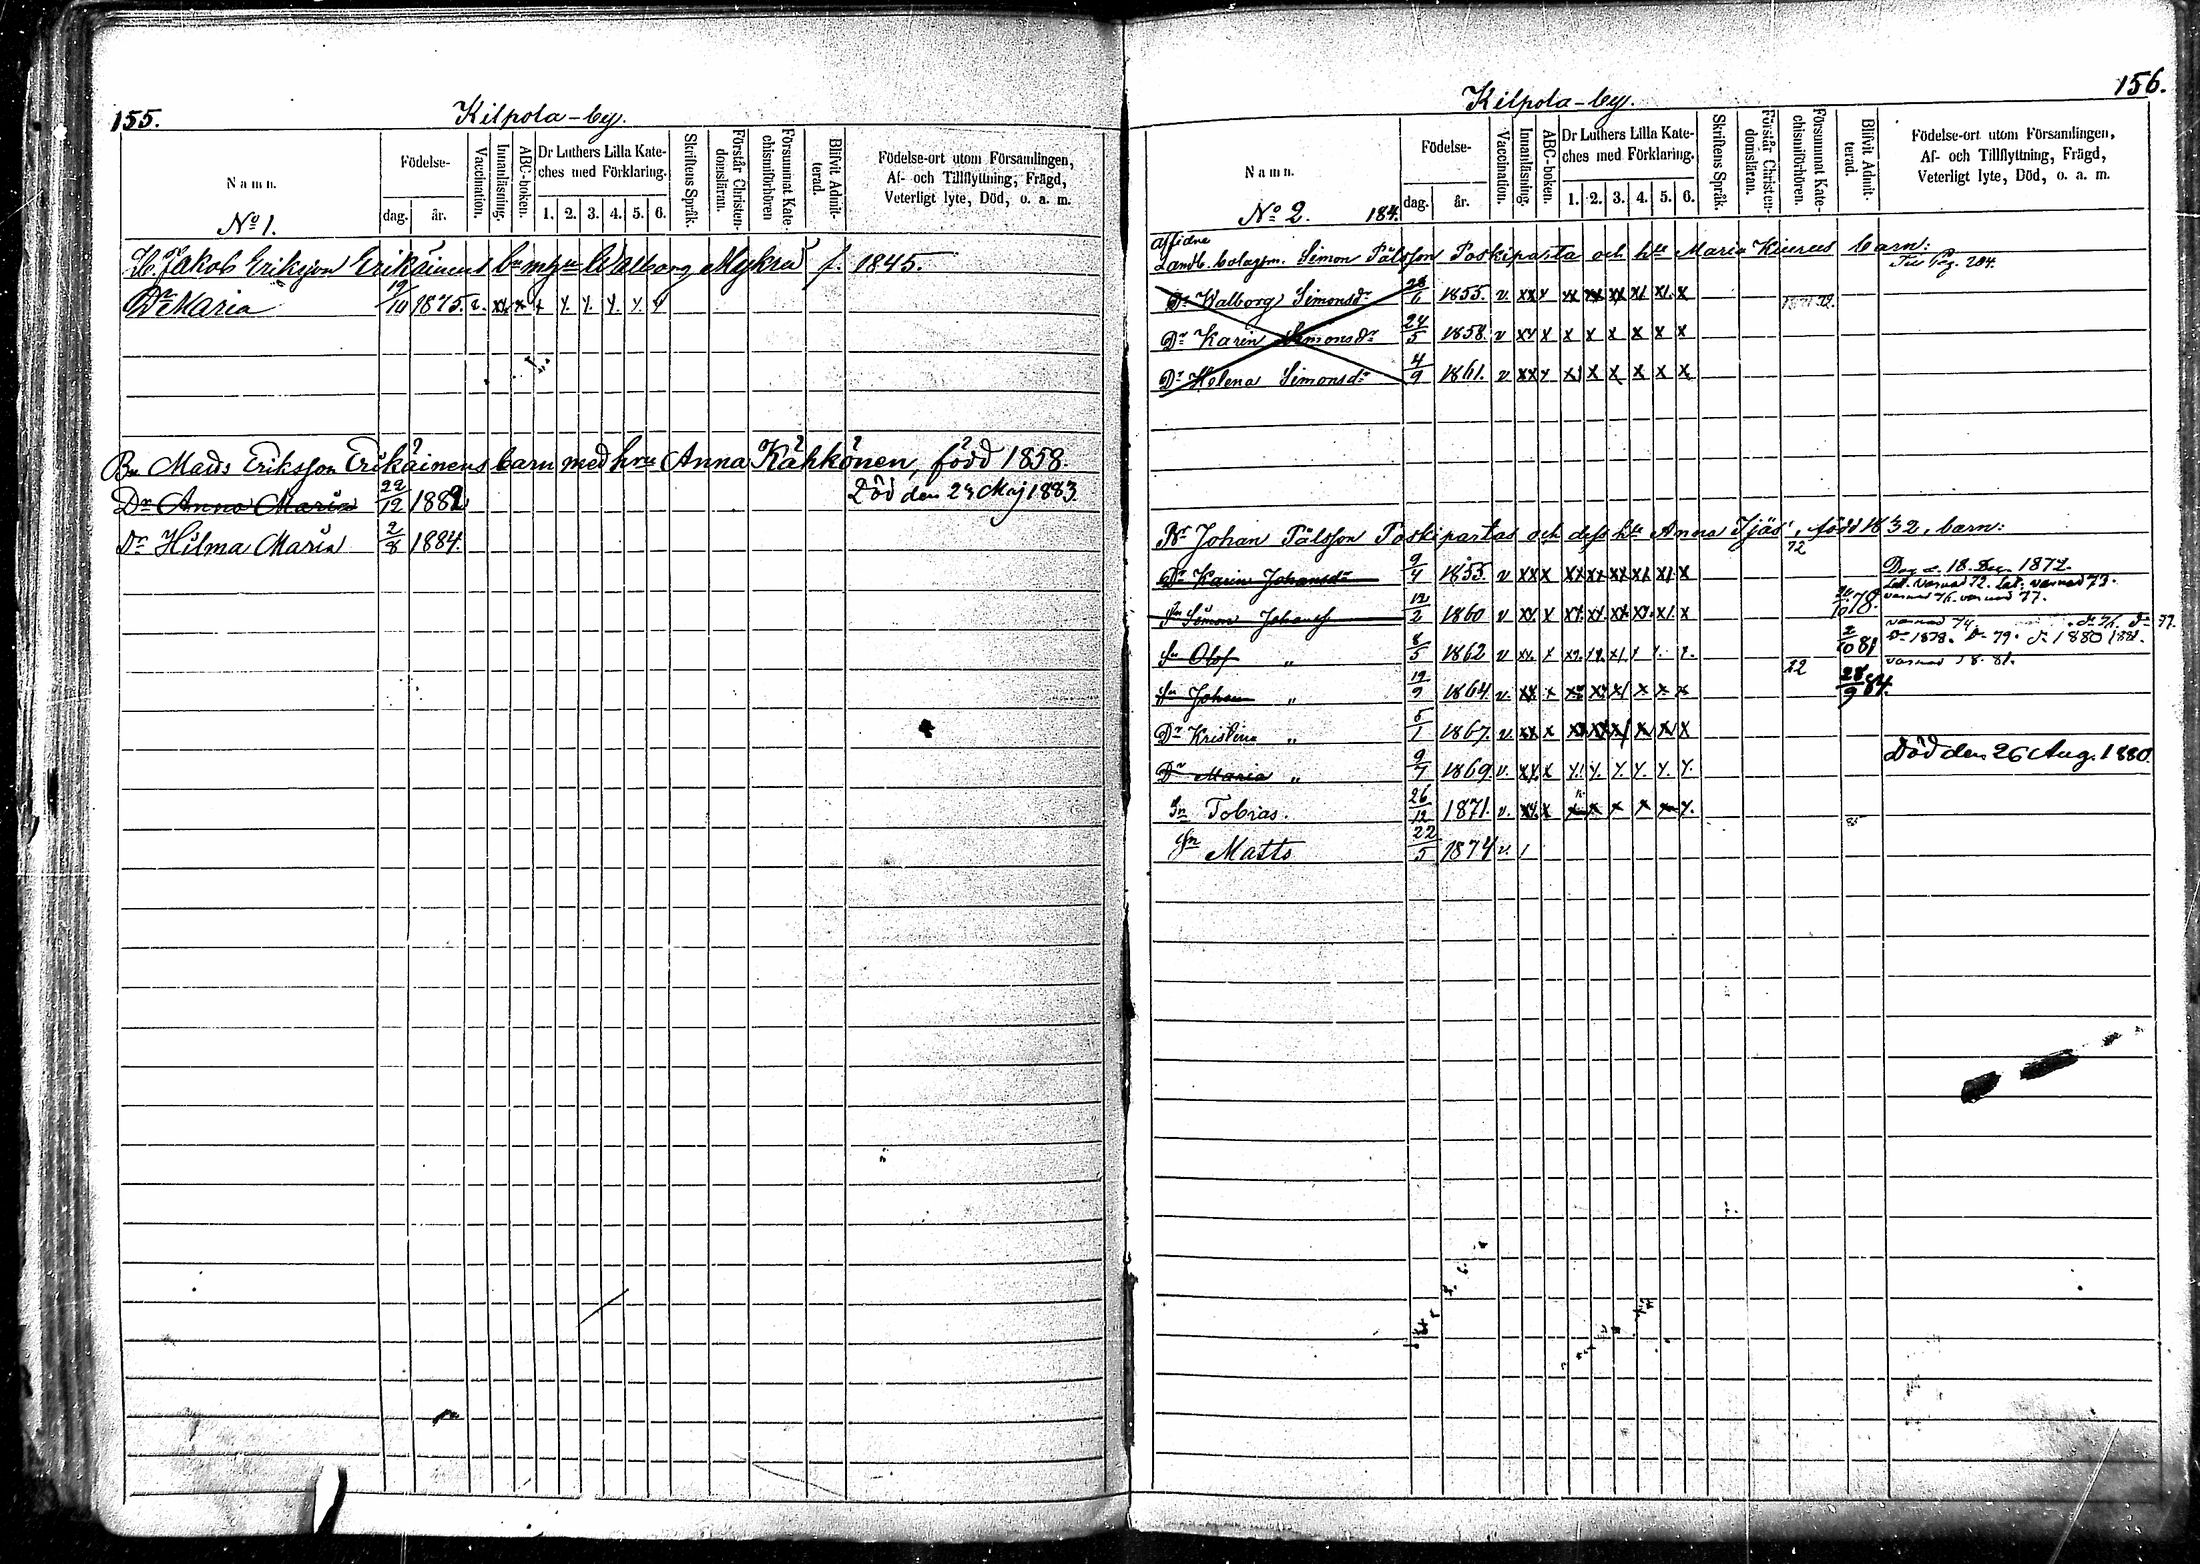 155.
Kilpola-by.
Namn.
Födelse-
dag.
år.
Vaccination.
Innanläsning.
ABC-boken.
Dr Luthers Lilla Kate-
ches med Förklaring.
1. 2. 3. 4. 5. 6.
Skriftens Språk.
Förstår Christen-
domsläran.
Försummat Kate-
chismiförhören
Blifvit Admit-
terad.
Födelse-ort utom Församlingen,
Af- och Tillflyttning, Frägd,
Veterligt lyte, Död, o. a. m.
No 1.
Jakob Eriksson Erikäinens Walborg Mykrä f. 1845.
Dr Maria 19/10 1875. v. xx x x x. x. x. x. x
Bn Mads Eriksson Erikäinens barn med hru Anna Kähkönen, född 1858.
Dr Anna Maria 22/12 1882 Död den 24 Maj 1883.
Dr Hilma Maria 2/8 1884.
156.
Kilpola-by.
Namn.
Födelse-
dag.
år.
Vaccination.
Innanläsning.
ABC-boken.
Dr Luthers Lilla Kate-
ches med Förklaring.
1. 2. 3. 4. 5. 6.
Skriftens Språk.
Förstår Christen-
domsläran.
Försummat Kate-
chismiförhören.
Blifvit Admit-
terad.
Födelse-ort utom Församlingen,
Af- och Tillflyttning, Frägd,
Veterligt lyte, Död, o. a. m.
No 2. 184.
Aflidne
Landb. bolagsm. Simon Pålsson Poskiparta och hu Maria Kiurus barn:
Till pag. 204.
Dr Walborg Simonsdr 28/6 1855. v. xx x xx xx xx x x x
Dr Karin Simonsdr 24/5 1858. v xx x x x x x x x
Dr Helena Simonsdr 4/9 1861. v xx x x x x x x x
Br Johan Pålsson Poskipartas och dess hu Anna Ijäs, född 1832, barn:
72
Dr Karin Johansdr 9/4 1855. v xx x xx xx xx x x x Dec. 1872.
Sn Simon Johanss 12/2 1860 v xx. x xx. xx. xx. xx. x. x 78.
Sn Olof " 8/5 1862 v xx. x 2/10 81 Do 1878. Do 79. Do 1880 1881.
Sn Johan " 12/9 1864 v. xx. x 12 28/9 84.
Dr Kristina " 5/1 1867. v. xx. x
Dr Maria " 9/7 1869 v. xx. x x. x. x. x. x. x. Död den 26 Aug. 1880.
Sn Tobias. 26/12 1871. v. xx. x x x x x x x.
Sn Matts 22/5 1874 v.